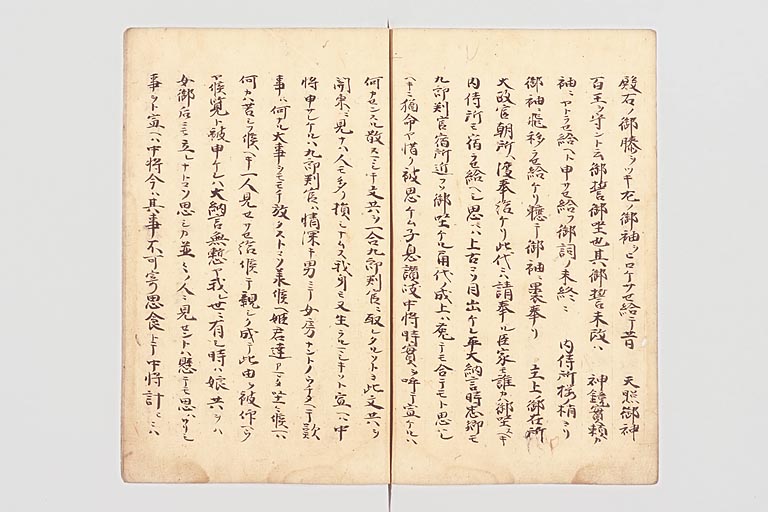 殿右ノ御膝ヲツキ左ノ御袖ヲヒロケサセ給テ昔　天照御神
百王ヲ守ント云御誓御坐也其御誓未改ハ　神鏡実頼カ
袖ニヤトラセ給ヘト申サセ給フ御詞ノ未終ニ　内侍所桜ノ梢ヨリ
御袖ニ飛移ラセ給ケリ軈テ御袖ニ裹奉リ　主上ノ御在所
大政官朝所ヘ渡奉給ケリ此代ニハ請奉ル臣家モ誰カハ御坐ヘキ
内侍所モ宿ラセ給ヘシ思ニハ上古コソ目出ケレ平大納言時忠卿モ
九郎判官宿所近フソ御坐ケル角代ノ成上ハ兎テモ合テモト思ヘシ
ハナニ猶命ヲ惜ク被思ケム子息讃岐中将時実ヲ呼テ宣ケルハ
何カセンスル散スマシキ文共ヲ一合九郎判官ニ取レタルソトヨ此文共ヲ
関東ニ見ナハ人モ多ク損シナムス我身モ又生ラルマシキソト宣ヘハ中
将申サレケルハ九郎判官ハ情深キ男ニテ女房ナントノウチタヘテ歎
事ハ何ナル大事ヲモモテ放タストコソ承候ヘ姫君達アマタ坐シ候ヘハ
何カハ苦シク候ヘキ一人見セサセ給候テ親シク成テ此由ヲ被仰ヘウ
ヤ候覧ト被申ケレハ大納言無慙ヤ我世ニ有シ時ハ娘共ヲハ
女御后ニモ立ムナトコソ思シカ並々ノ人ニ見セントハ懸テモ思ハサリシ
事ヲト宣ヘハ中将今ハ其事不可寄思食トテ中将計ニハ